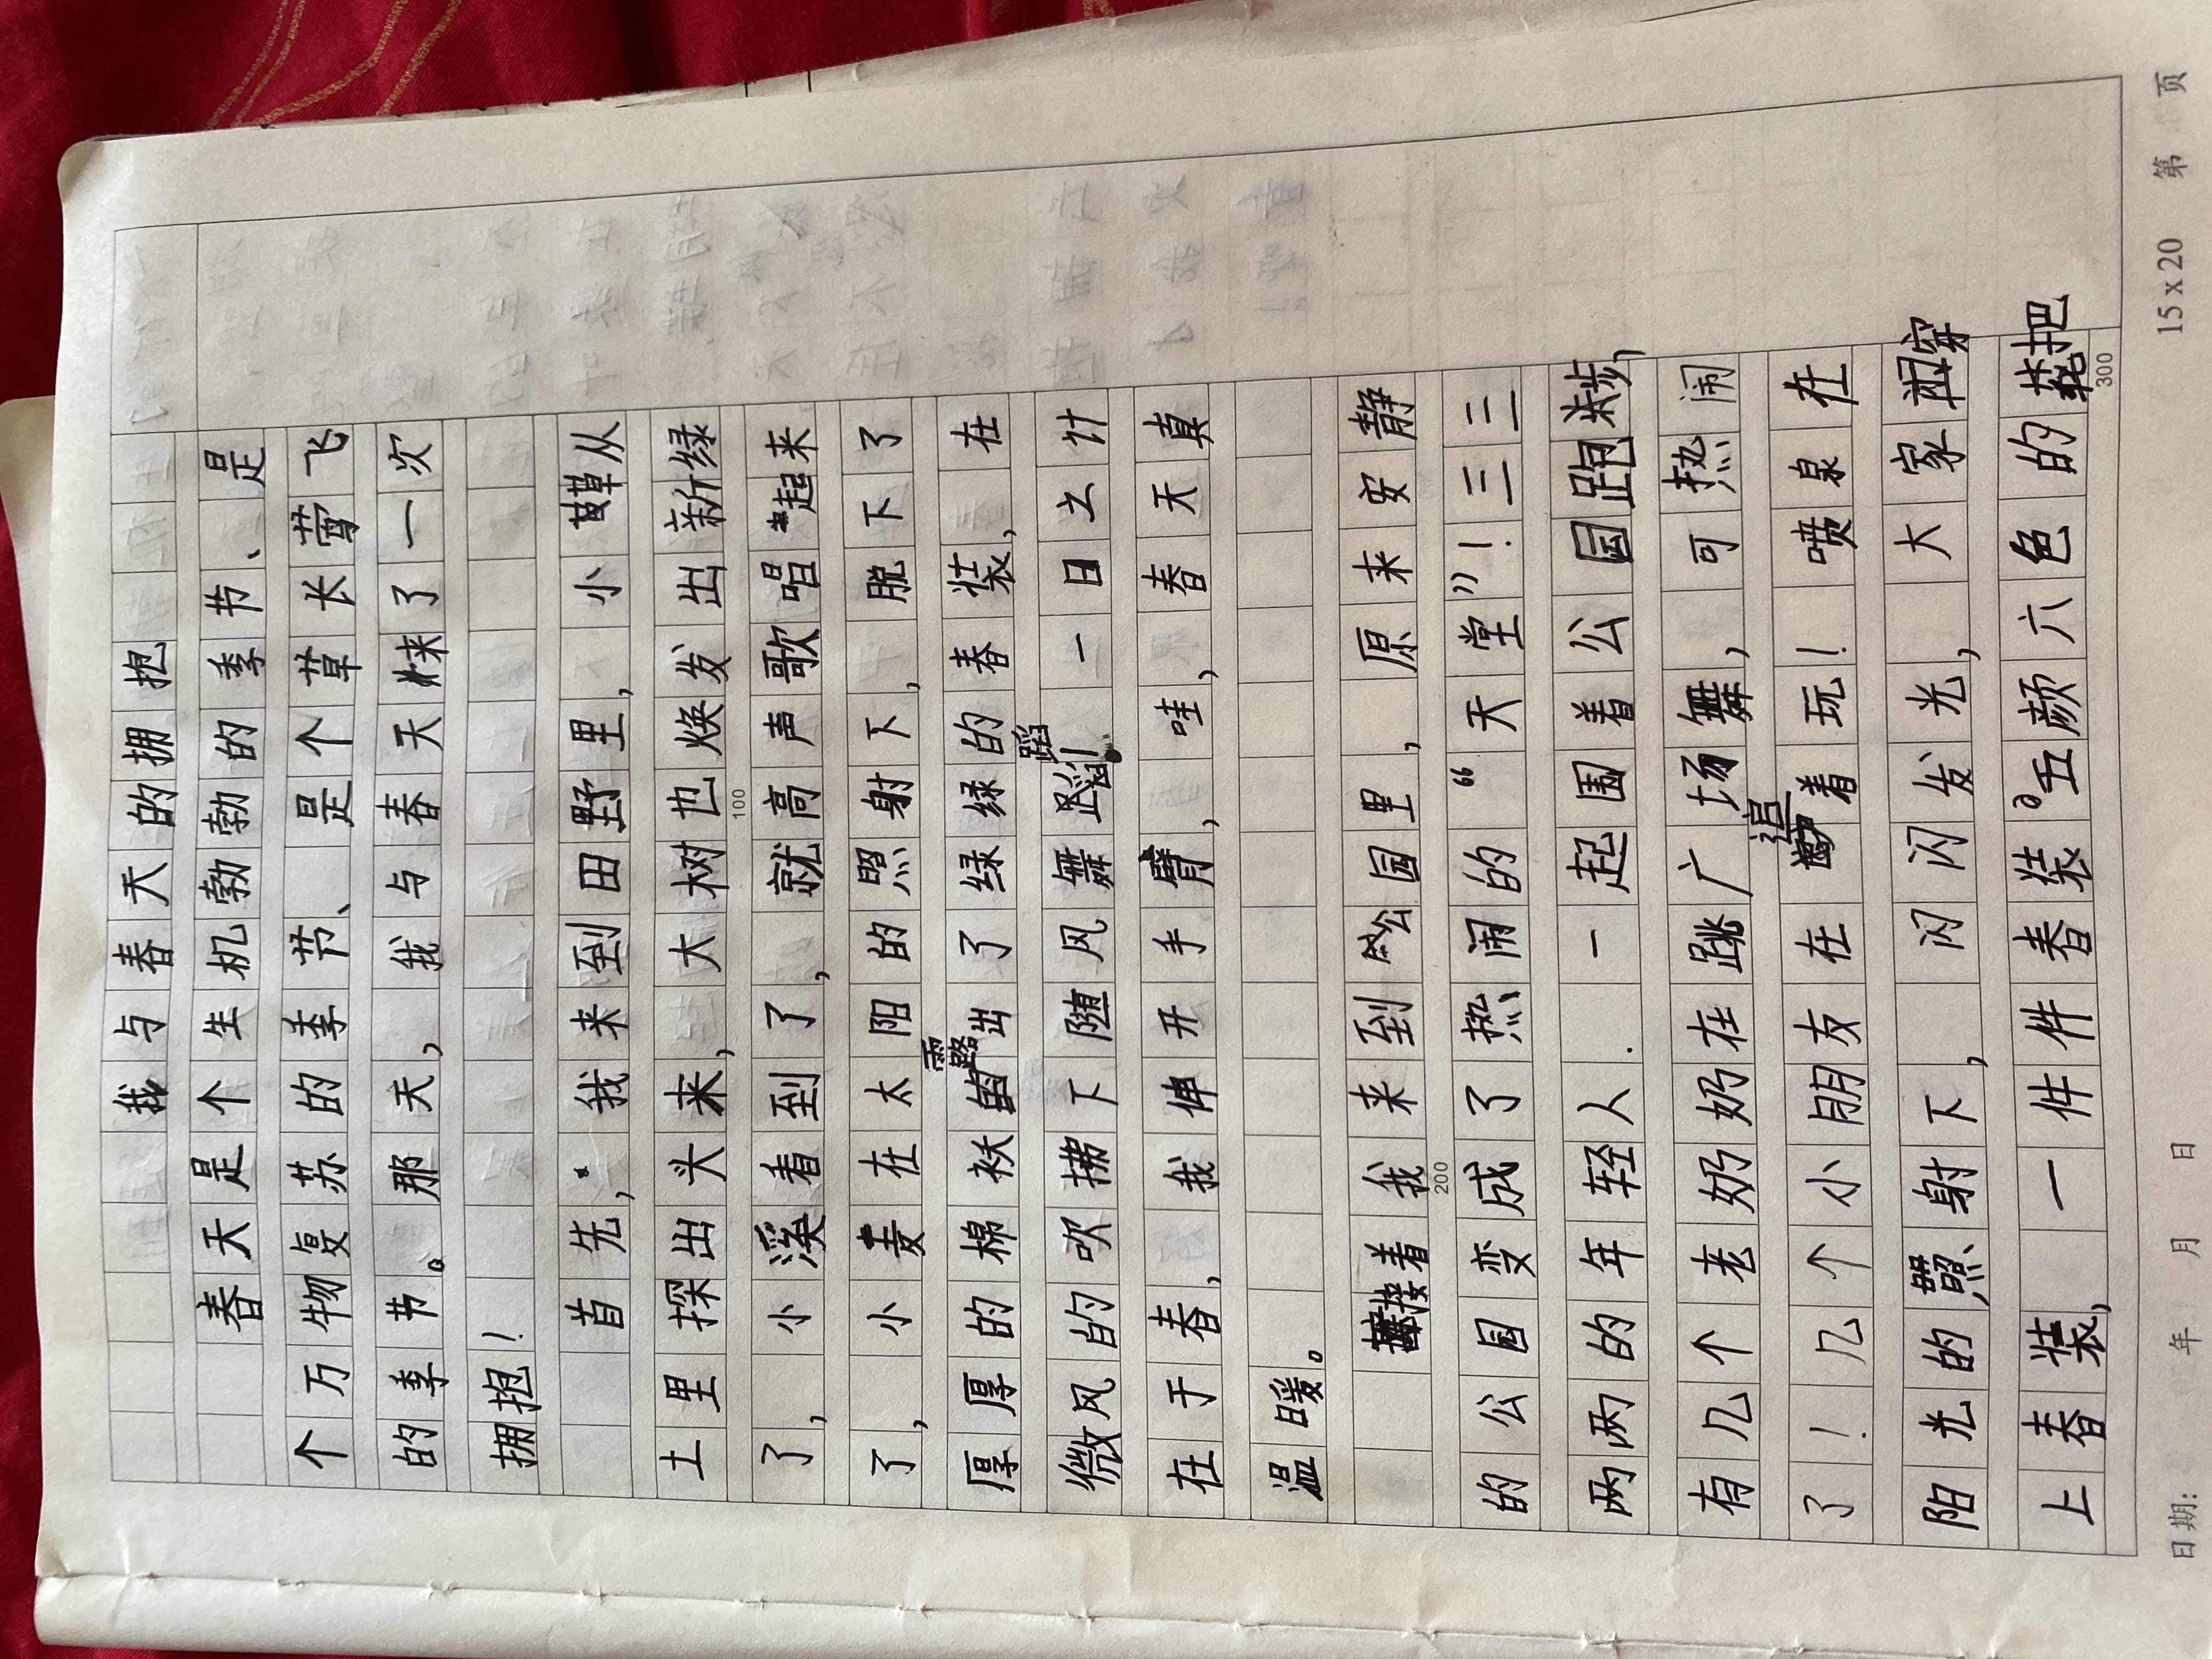 我与春天的拥抱
春天是个生机勃勃的季节、是
个万物复苏的季节、是个草长莺飞
的季节。那天,我与春天来了一次
拥抱!
首先,我来到田野里,小草从
土里探出头来,大树也焕发出新绿
了,小溪看到了,就高声歌唱起来
了,小麦在太阳的照射下,脱下了
厚厚的棉袄露出了绿绿的春装,在
微风的吹拂下随风舞蹈!一日之计
在于春,我伸开手臂,哇,春天真
温暖。
接着我来到公园里,原来安静
的公园变成了热闹的“天堂”!三三
两两的年轻人一起围着公园跑步,
有几个老奶奶在跳广场舞,可热闹
了!几个小朋友在追着玩!喷泉在
阳光的照射下,闪闪发光,大家穿
上春装,一件件春装五颜六色的把
100
200
300
日期: 年 月 日 15x20 第 页